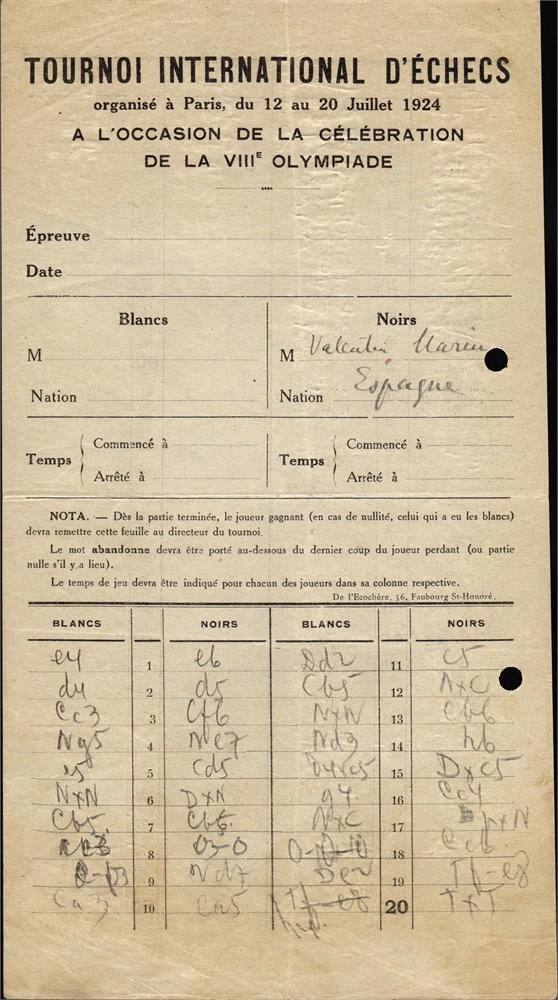 TOURNOI INTERNATIONAL D'ÉCHECS
organisé à Paris, du 12 au 20 Juillet 1924
A L'OCCASION DE LA CÉLÉBRATION
DE LA VIIIE OLYMPIADE
Épreuve
Date
Blancs Noirs
M M Valentin Marin
Nation Nation Espagne
Temps Commencé à Temps Commencé à
Arrêté à Arrêté à
NOTA. — Dès la partie terminée, le joueur gagnant (en cas de nullité, celui qui a eu les blancs)
devra remettre cette feuille au directeur du tournoi.
Le mot abandonne devra être porté au-dessous du dernier coup du joueur perdant (ou partie
nulle s'il y a lieu).
Le temps de jeu devra être indiqué pour chacun des joueurs dans sa colonne respective.
De l'Ecochère, 56, Faubourg St-Honoré.
BLANCS NOIRS BLANCS NOIRS
e4 1 e6 Dd2 11 c5
d4 2 d5 Cb5 12 AxC
Cc3 3 Cf6 NxN 13 Cb6
Ng5 4 Ne7 Nd3 14 h6
e5 5 Cd5 15 Dxc5
NxN 6 DxN g4 16 Cc4
Cb5 7 Cb6 NxC
8 0-0 18 Cc6
9 Nd7 De2 19 Tf-e8
Ca3 10 Ca5 20 TxT